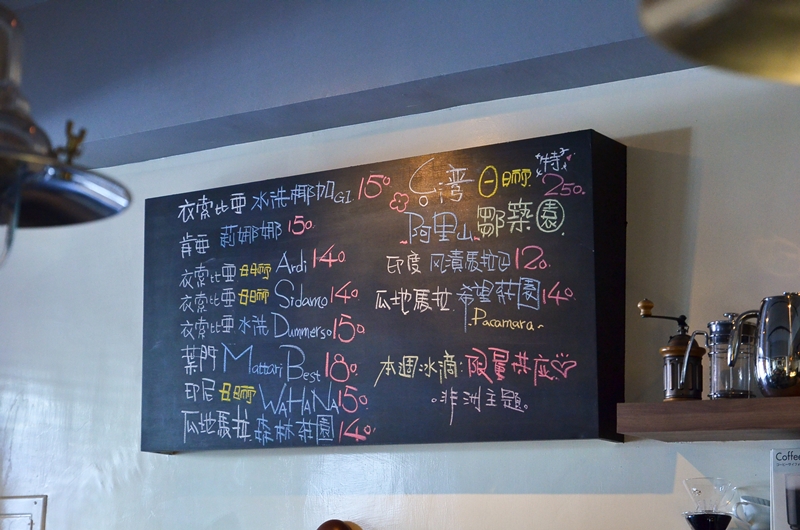 衣索比亞 水洗 椰加 G1. 150
肯亞 莉娜娜 150.
衣索比亞 日晒 Ardi 140.
衣索比亞 日晒 Sidamo 140.
衣索比亞 水洗 Dummerso 150.
葉門 Mattari Best 180.
印尼 日晒 WAHANA 150.
瓜地馬拉 森林莊園 140.
台灣 日晒 特 250.
阿里山 鄒築園
印度 风漬馬拉巴 120.
瓜地馬拉 希望莊園 140.
Pacamara~
本週冰滴:限量供应♡
非洲主題。
Coffee